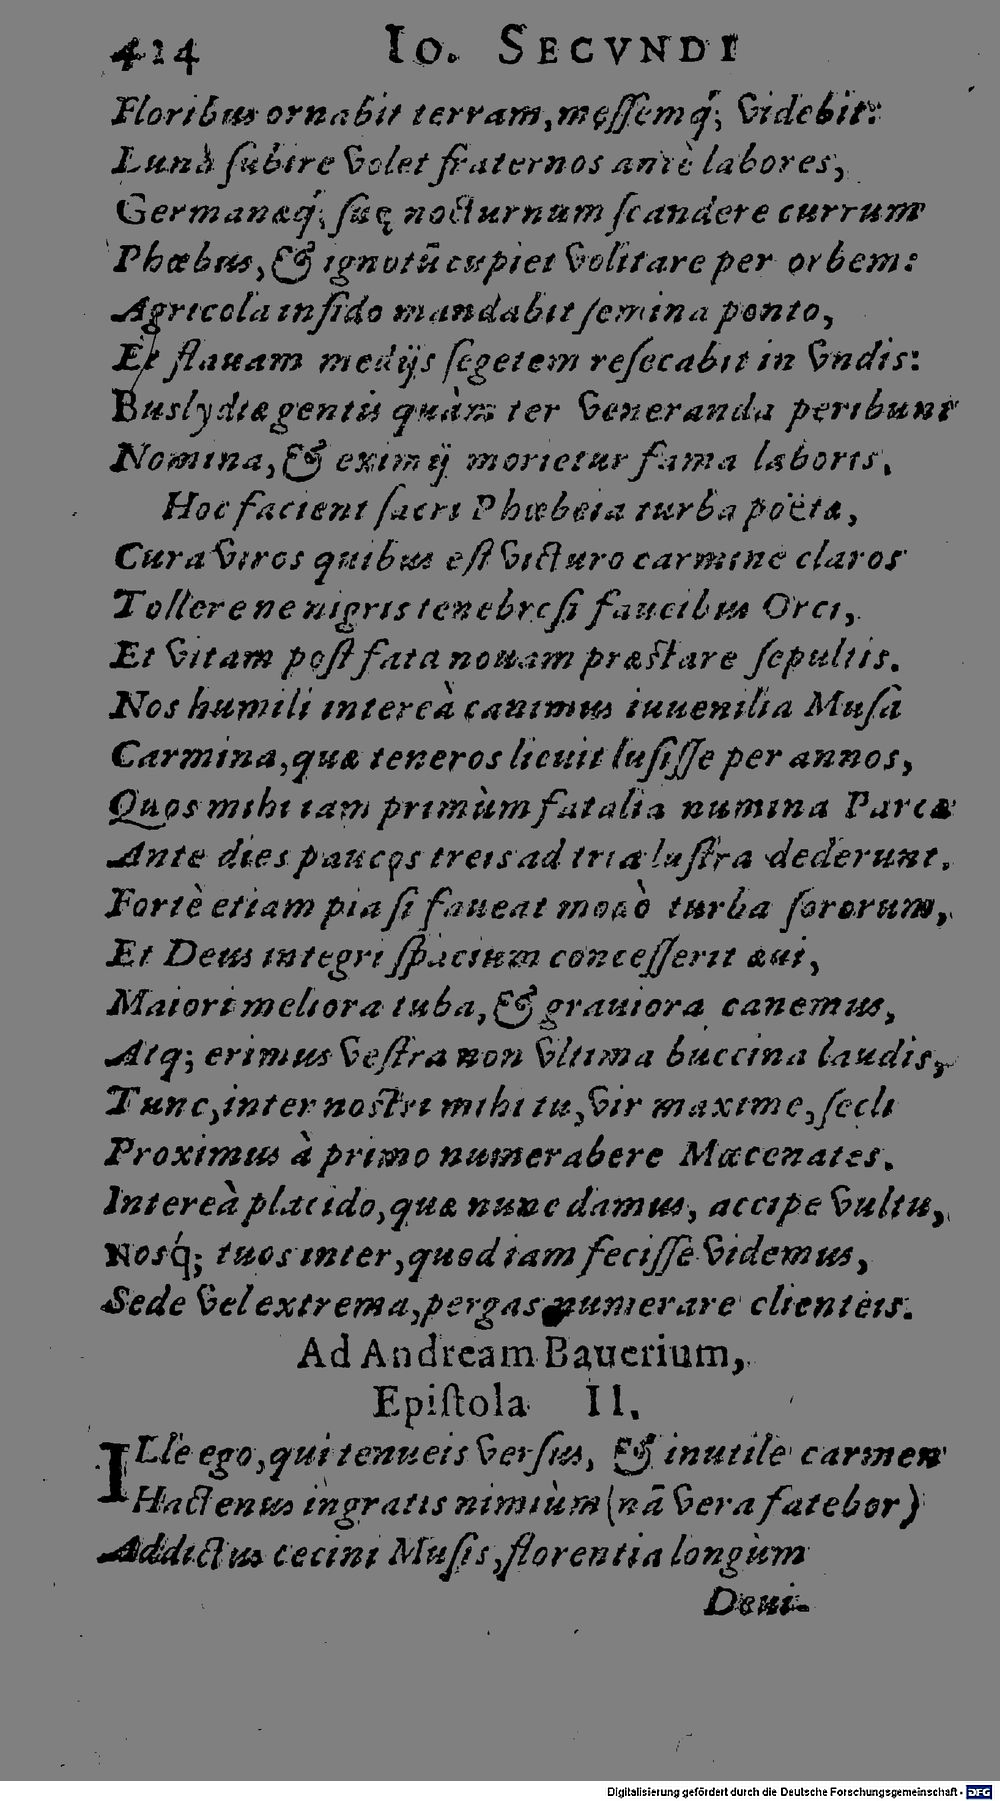 414 Io. SECVNDI
Floribus ornabit terram, messemq́; videbit:
Luna subire volet fraternos antè labores,
Germanæq́; suę nocturnum scandere currum
Phœbus, & ignotū cupiet volitare per orbem:
Agricola infido mandabit semina ponto,
Et flauam medijs segetem resecabit in vndis:
Buslydiæ gentis quàm ter veneranda peribunt
Nomina, & eximij morietur fama laboris.
Hoc facient sacri Phœbeia turba poëtæ,
Cura viros quibus est victuro carmine claros
Tollere ne nigris tenebresi faucibus Orci,
Et vitam post fata nouam præstare sepultis.
Nos humili intereà canimus iuuenilia Musâ
Carmina, quæ teneros licuit lusisse per annos,
Quos mihi iam primùm fatalia numina Parcæ
Ante dies paucos treis ad tria lustra dederunt.
Fortè etiam pia si faueat modò turba sororum,
Et Deus integri spacium concesserit æui,
Maiori meliora tuba, & grauiora canemus,
Atq; erimus vestra non vltima buccina laudis,
Tunc, inter nostri mihi tu, vir maxime, secli
Proximus à primo numerabere Mæcenates.
Intereà placido, quæ nunc damus, accipe vultu,
Nosq́; tuos inter, quod iam fecisse videmus,
Sede vel extrema, pergas numerare clienteis.
Ad Andream Bauerium,
Epistola II.
ILle ego, qui tenueis versus, & inutile carmen
Hactenus ingratis nimiùm (nā vera fatebor)
Addictus cecini Musis, florentia longùm
Deui-
Digitalisierung gefördert durch die Deutsche Forschungsgemeinschaft - DFG